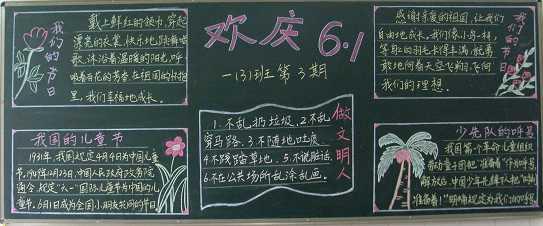 欢庆 6.1
一(3)班 第3期
我们的节日
戴上鲜红的领巾,穿起
漂亮的衣裳,快乐地跳舞唱
歌,沐浴着温暖的阳光,呼
吸着百花的芳香,在祖国的怀抱
里,我们幸福地成长。
感谢亲爱的祖国,让我们
自由地成长。我们像小鸟一样,
等身上的羽毛长得丰满,就勇
敢地向着天空飞翔,飞向
我们的理想。
我们的节日
我国的儿童节
1931年,我国规定4月4日为中国儿童
节。1949年12月23日,中国人民政府政务院
通令,规定"六一"国际儿童节为中国的儿
童节。6月1日成为全国小朋友共同的节日
做文明人
1.不乱扔垃圾。2.不乱
穿马路。3.不随地吐痰。
4.不践踏草地。5.不说脏话。
6.不在公共场所乱涂乱画。
少先队的呼号
我国第一个革命儿童组织
劳动童子团把"准备着"作为呼号。
解放后,中国少年先锋队把
准备着!""时刻准备着!"